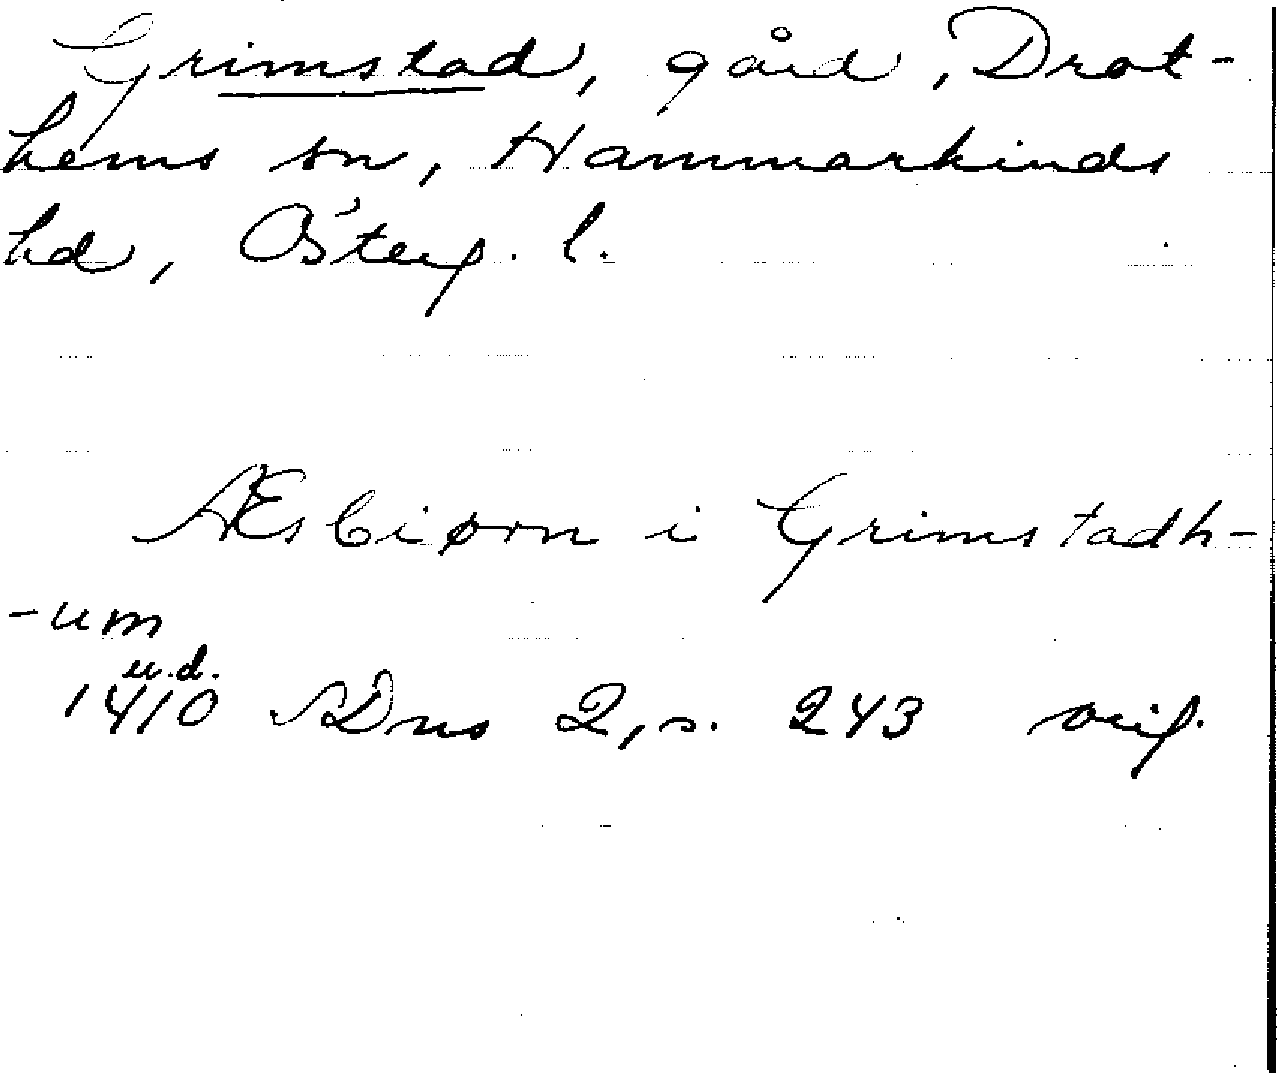 Grimstad, gård, Drot-
hems sn, Hammarkinds
hd, Österg. l.
ÆEsbiørn i Grimstadh-
-um
u.d.
1410 SDns 2, s. 243 orig.